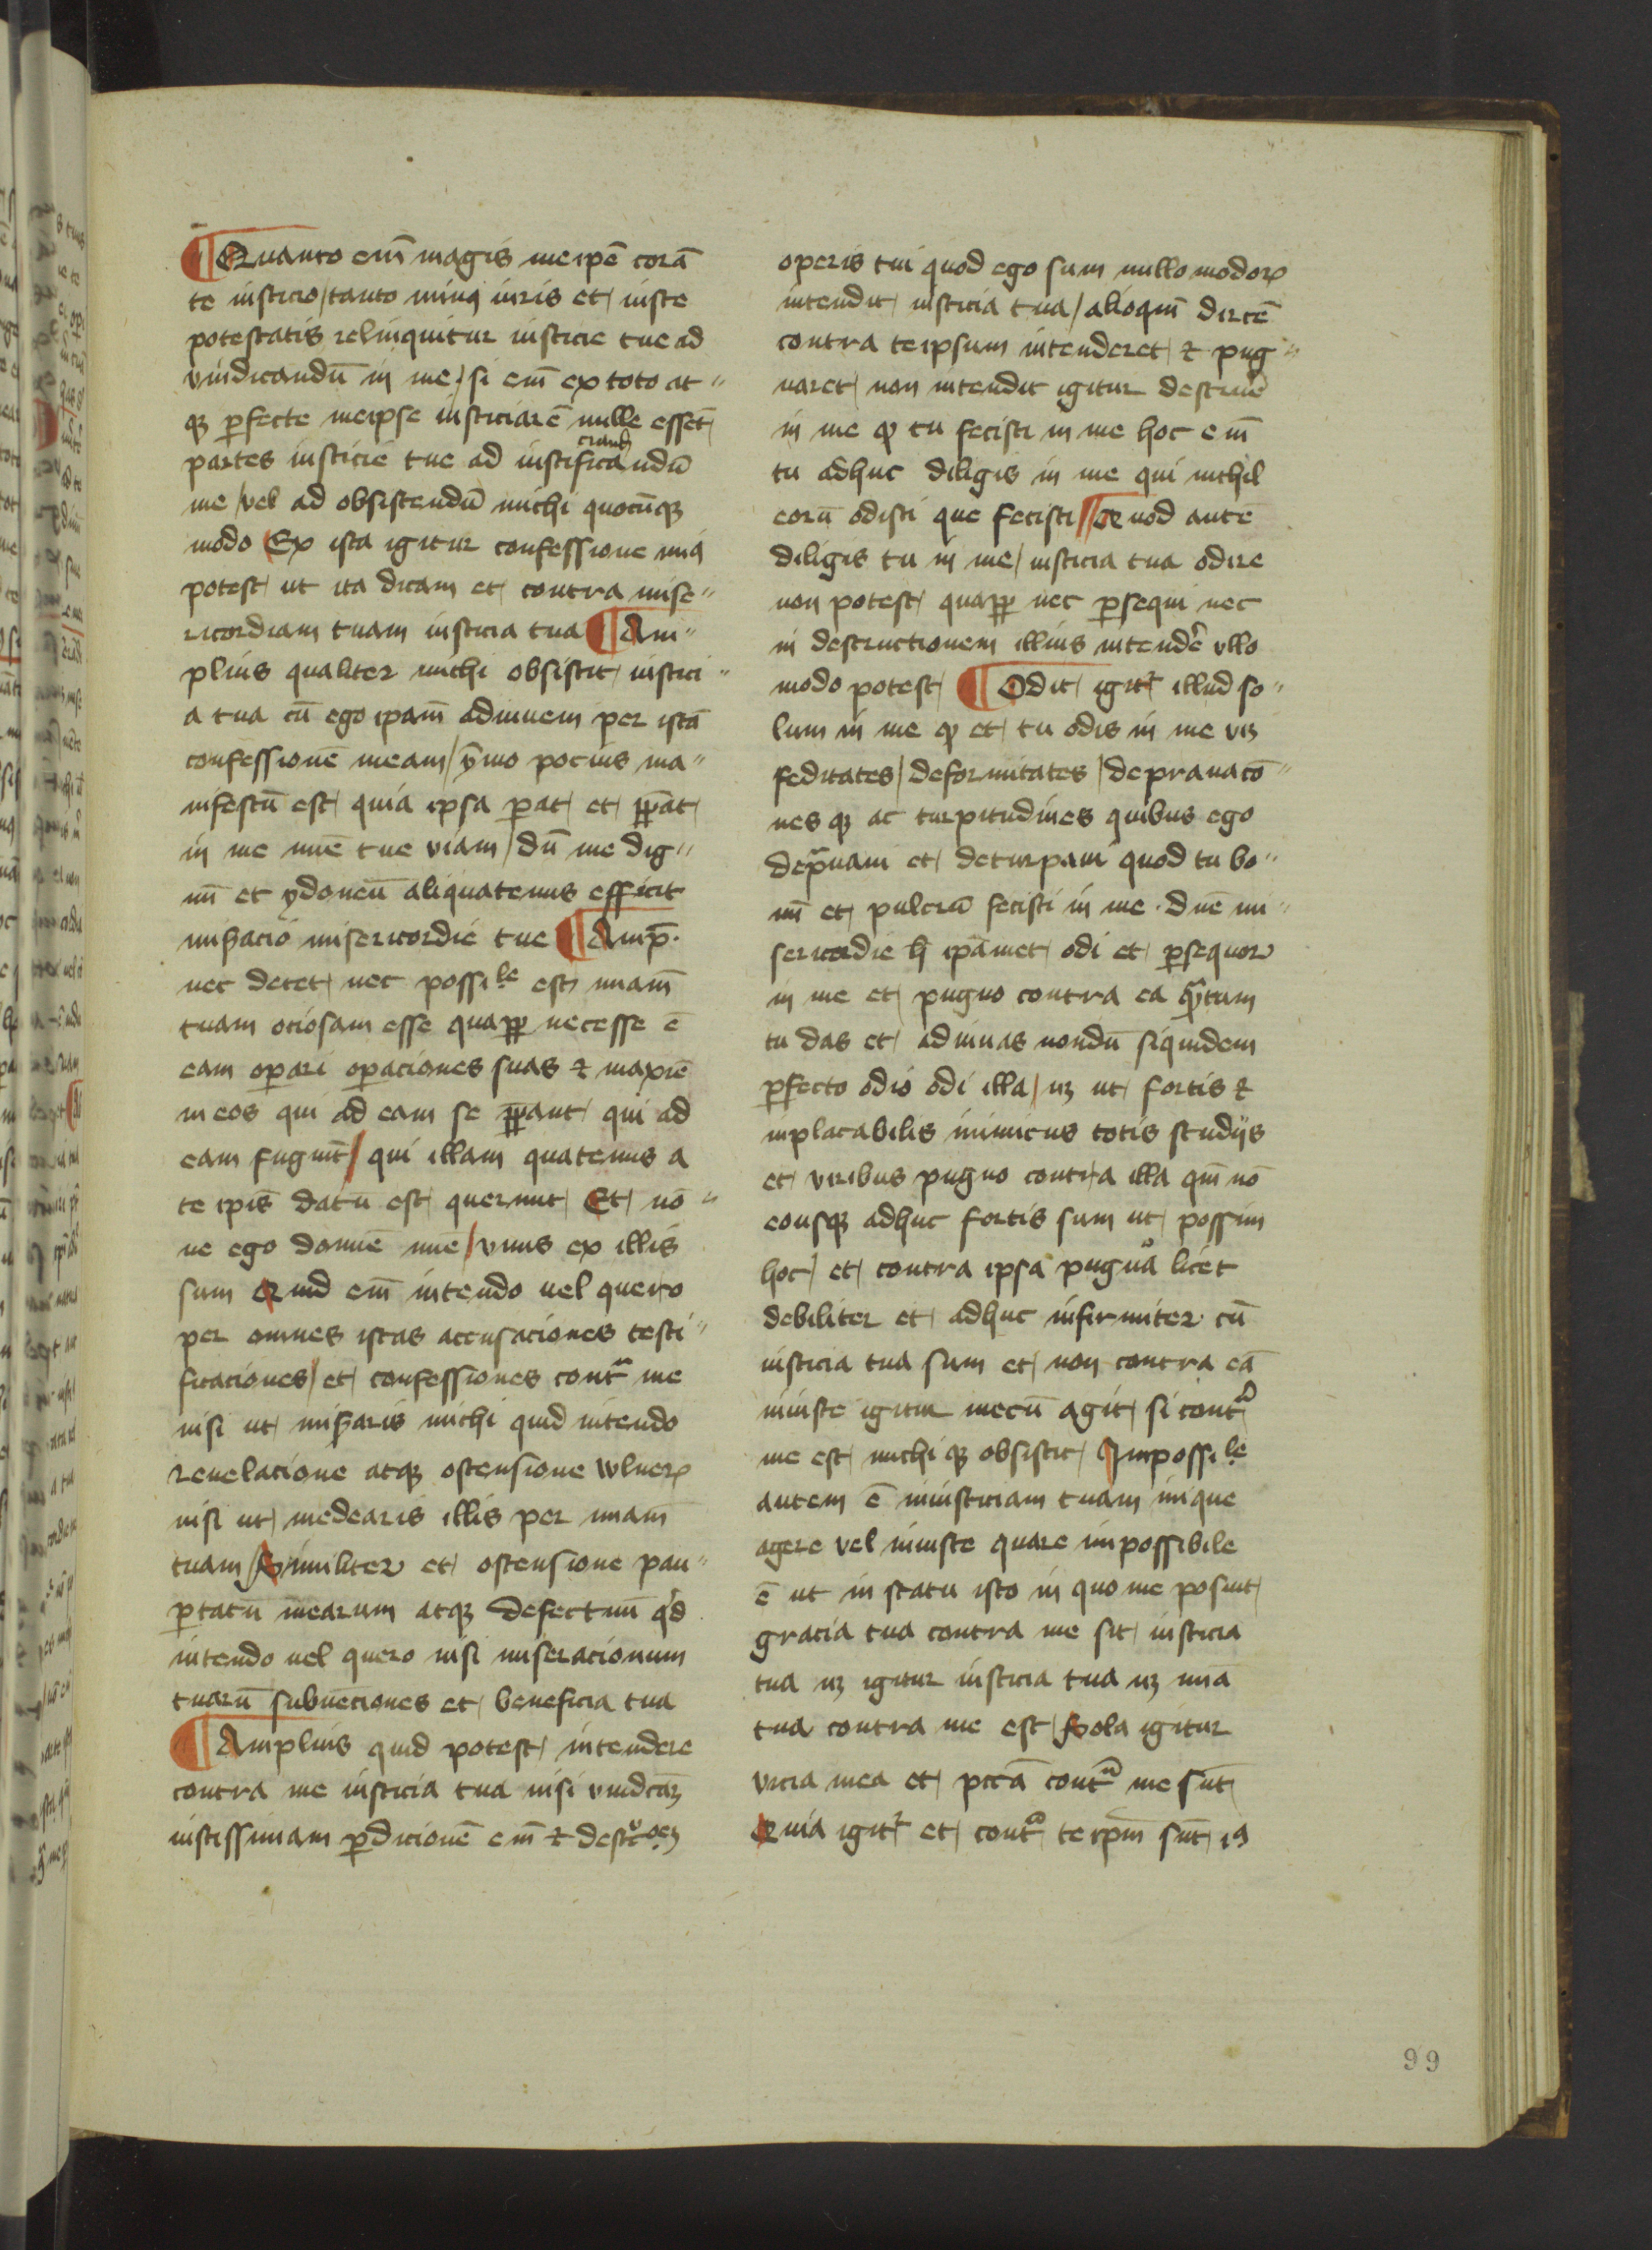 ¶ Quanto em̄ magis meip̄e corā
te iusticio / tanto minꝰ iuris et iuste
potestatis relinquitur iusticie tue ad
vindicandū in me / si em̄ ex toto at〃
qꝫ ꝑfecte meipse iusticiarē nulle essēt
partes iusticie tue ad iustificandū
me / vel ad obsistendū michi quocūqꝫ
modo Ex ista igitur confessione mīa
potest ut ita dicam et contra mise〃
ricordiam tuam iusticia tua ¶ Am〃
plius qualiter michi obsistit iustici〃
a tua cū ego ipam̄ adiuuem per istā
confessionē meam / ȳmo pocius ma〃
nifestū est quia ipsa ꝑat et p̄ꝑat
in me mīe tue viam / dū me dig〃
nū et ydoneū aliquatenus efficit
mis̄acio misericordie tue ¶ Amp̄.
nec decet nec possiᵇˡᵉ est miam̄
tuam ociosam esse quaꝓp̄ necesse ē
eam oꝑari oꝑaciones suas ⁊ maxīe
in eos qui ad eam se p̄ꝑant qui ad
eam fugiūt / qui illam quatenus a
te ip̄is datū est querunt Et nō〃
ne ego domīe mīe / vnus ex illis
sum Quid em̄ intendo uel quero
per omnes istas accusaciones testi〃
ficaciones / et confessiones contᵃ me
nisi ut mis̄aris michi quid intendo
reuelacione atqꝫ ostensione wlneꝝ
nisi ut medearis illis per miam̄
tuam / Similiter et ostensione pau〃
ꝑtatū mearum atqꝫ defectuū qͥd
intendo uel quero nisi miseracionum
tuarū subuēciones et beneficia tua
¶ Amplius quid potest intendere
contra me iusticia tua nisi vindcāꝫ
iustissimam ꝑdicionē em̄ ⁊ destᵘoēꝫ
operis tui quod ego sum nullo modoꝝ
intendit iusticia tua / alioqui᷒n dirctē
contra teipsum intenderet ⁊ pug〃
naret non intendit igitur destruē
in me ꝙ tu fecisti in me hoc em̄
tu adhuc diligis in me qui nichil
eorū odisti que fecisti // Quod autē
diligis tu in me / iusticia tua odire
non potest quaꝓp̄ nec ꝑsequi nec
in destructionem illius intendē vllo
modo potest ¶ Odit igitᷣ illud so〃
lum in me ꝙ et tu odis in me vꝫ
feditates / deformitates / deprauacō〃
nes qꝫ ac turpitudines quibus ego
depᵃuaui et deturpaui quod tu bo〃
nū et pulcrū fecisti in me . dn̄e mi〃
sericordie h̄ ipāmet odi et ꝑsequor
in me et pugno contra ea qᵃntum
tu das et adiuuas nondū siquidem
ꝑfecto odio odi illa / nꝫ ut fortis ⁊
inplacabilis inimicus totis studijs
et viribus pugno contra illa qm̄ nō
eousqꝫ adhuc fortis sum ut possim
hoc / et contra ipsa pugnā licet
debiliter et adhuc infirmiter cū
iusticia tua sum et non contra eā
iniuste igitur mecū agit si contᵃ
me est michi qꝫ obsistit Impossiᵇˡᵉ
autem ē iniusticiam tuam inique
agere vel iniuste quare impossibile
ē ut in statu isto in quo me posuit
gracia tua contra me sit iusticia
tua nꝫ igitur iusticia tua nꝫ mīa
tua contra me est Sola igitur
vicia mea et pctā̄ contᵃ me sūt
Quia igitᷣ et contᵃ teip̄m sūt iꝰ
99